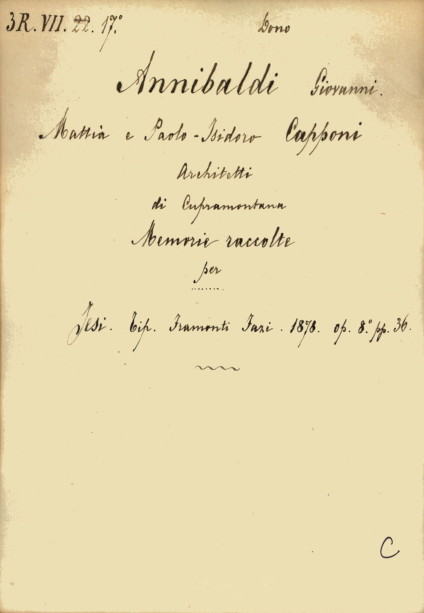 3R. VII. 22. 17.° Dono
Annibaldi Giovanni.
Mattia e Paolo-Isidoro Capponi
Architetti
di Cupramontana
Memorie raccolte
per
Jesi. Tip. Framonti Fazi. 1878. op. 8.° pp. 36.
C